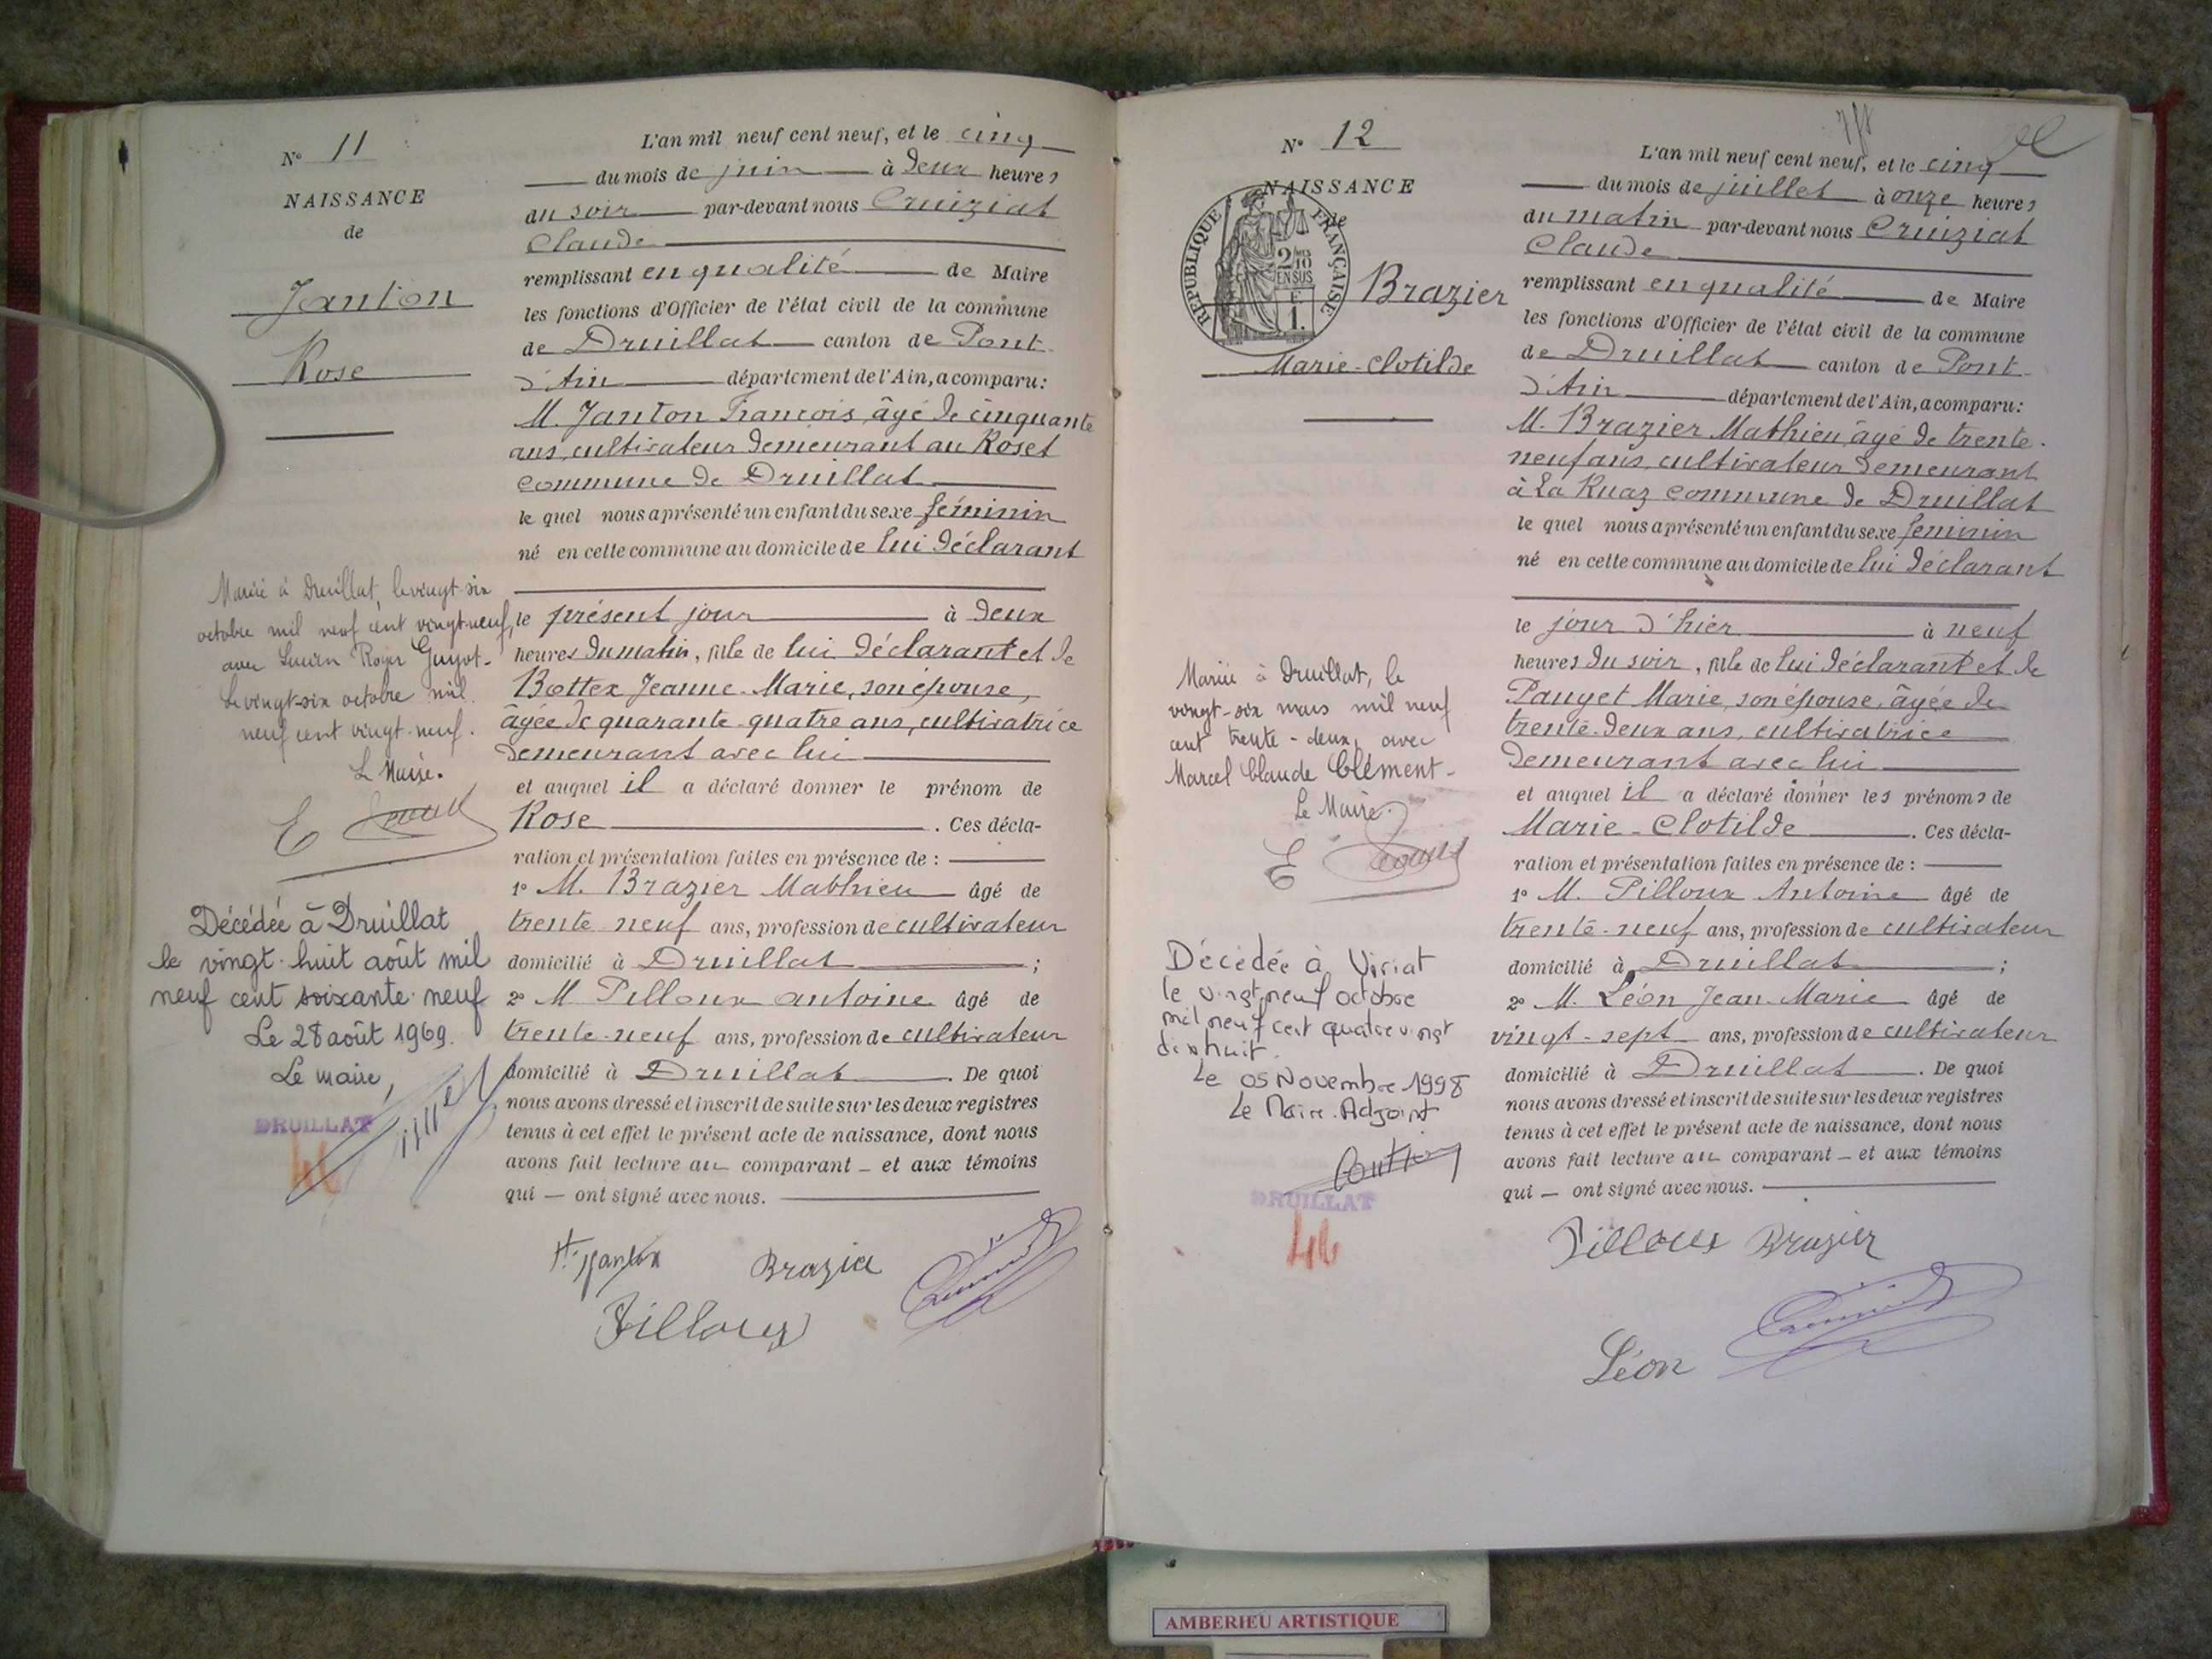 N° 11
NAISSANCE
de
Janton
Rose
L'an mil neuf cent neuf, et le cinq
du mois de juin à deux heures
du soir par-devant nous Cruiziat
Claude
remplissant en qualité de Maire
les fonctions d'Officier de l'état civil de la commune
de Druillat canton de Pont-
d'Ain département de l'Ain, a comparu:
M. Janton François, âgé de cinquante
ans, cultivateur demeurant au Roset
commune de Druillat
le quel nous a présenté un enfant du sexe féminin
né en cette commune au domicile de lui déclarant
le présent jour à deux
heures du matin, fille de lui déclarant et de
Bottex Jeanne-Marie, son épouse,
âgée de quarante-quatre ans, cultivatrice
demeurant avec lui
et auquel il a déclaré donner le prénom de
Rose. Ces décla-
ration et présentation faites en présence de :
1° M. Brazier Mathieu âgé de
trente neuf ans, profession de cultivateur
domicilié à Druillat ;
2° M Pilloux antoine âgé de
trente-neuf ans, profession de cultivateur
domicilié à Druillat. De quoi
nous avons dressé et inscrit de suite sur les deux registres
tenus à cet effet le présent acte de naissance, dont nous
avons fait lecture au comparant – et aux témoins
qui — ont signé avec nous.
Janton Brazier
Pilloux
Mariée à Druillat, le vingt-six
octobre mil neuf cent vingt-neuf,
avec Lucien Roger Guyot-
Le vingt-six octobre mil
neuf cent vingt-neuf.
Le Maire.
Décédée à Druillat
le vingt-huit août mil
neuf cent soixante-neuf
Le 28 août 1969.
Le maire,
DRUILLAT
N° 12
NAISSANCE
de
RÉPUBLIQUE FRANÇAISE
2/10 EN SUS
1.
Brazier
Marie-Clotilde
L'an mil neuf cent neuf, et le cinq
du mois de juillet à onze heures
du matin par-devant nous Cruiziat
Claude
remplissant en qualité de Maire
les fonctions d'Officier de l'état civil de la commune
de Druillat canton de Pont-
d'Ain département de l'Ain, a comparu:
M. Brazier Mathieu, âgé de trente-
neuf ans, cultivateur demeurant
à La Ruaz commune de Druillat
le quel nous a présenté un enfant du sexe féminin
né en cette commune au domicile de lui déclarant
le jour d'hier à neuf
heures du soir, fille de lui déclarant et de
Pauget Marie, son épouse, âgée de
trente-deux ans, cultivatrice
demeurant avec lui
et auquel il a déclaré donner les prénoms de
Marie-Clotilde. Ces décla-
ration et présentation faites en présence de :
1° M. Pilloux Antoine âgé de
trente-neuf ans, profession de cultivateur
domicilié à Druillat ;
2° M. Léon Jean-Marie âgé de
vingt-sept ans, profession de cultivateur
domicilié à Druillat. De quoi
nous avons dressé et inscrit de suite sur les deux registres
tenus à cet effet le présent acte de naissance, dont nous
avons fait lecture au comparant – et aux témoins
qui — ont signé avec nous.
Pilloux Brazier
Léon
Mariée à Druillat, le
vingt-six mars mil neuf
cent trente-deux, avec
Marcel Claude Clément-
Le Maire.
Décédée à Viriat
le vingt neuf octobre
mil neuf cent quatre vingt
dix huit.
Le 05 Novembre 1998
Le Maire-Adjoint
DRUILLAT
AMBERIEU ARTISTIQUE